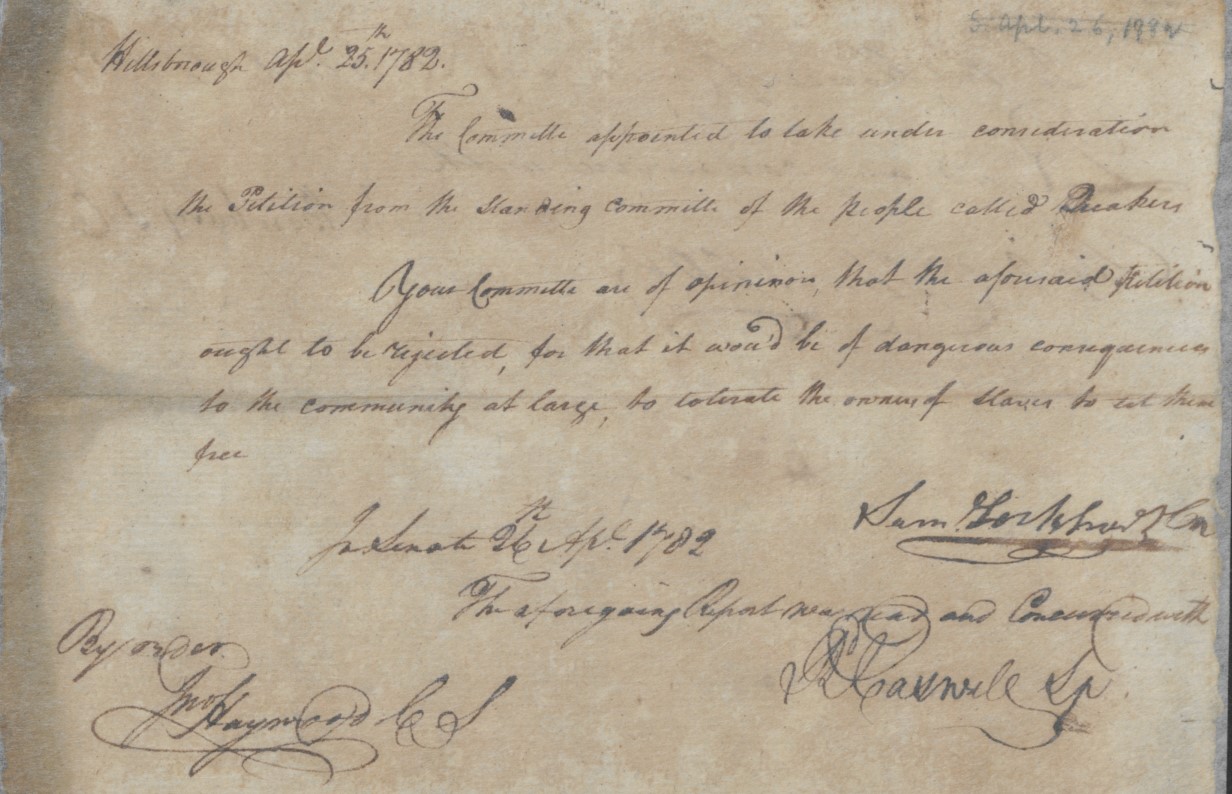 S. Apl. 26, 1782
Hillsborough Apl. 25th. 1782.
The Committe appointed to take under consideration
the Petition from the standing committe of the people called Quakers
Your Committe are of opininon, that the aforesaid Petition
ought to be rejected, for that it wou'd be of dangerous consequences
to the community at large, to tolerate the owners of slaves to set them
free
Sam. Lockhart Cm
In Senate 26th Apl. 1782
The aforegoing Report was read and Concurred with
By order
Jno Haywood C S
Rd Caswell Sp